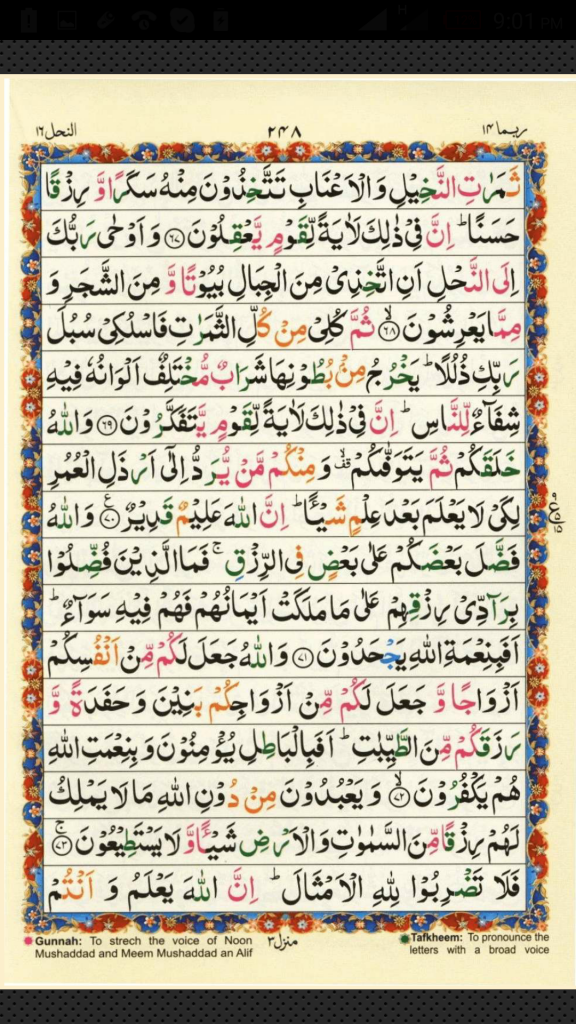 9:01 PM
ربما ۱۴
۲۴۸
النحل ۱۶
ثَمَرٰتِ النَّخِيْلِ وَالْاَعْنَابِ تَتَّخِذُوْنَ مِنْهُ سَكَرًا وَّ رِزْقًا
حَسَنًا ؕ اِنَّ فِيْ ذٰلِكَ لَاٰيَةً لِّقَوْمٍ يَّعْقِلُوْنَ ﴿۶۷﴾ وَ اَوْحٰى رَبُّكَ
اِلَى النَّحْلِ اَنِ اتَّخِذِيْ مِنَ الْجِبَالِ بُيُوْتًا وَّ مِنَ الشَّجَرِ وَ
مِمَّا يَعْرِشُوْنَ ۙ﴿۶۸﴾ ثُمَّ كُلِيْ مِنْ كُلِّ الثَّمَرٰتِ فَاسْلُكِيْ سُبُلَ
رَبِّكِ ذُلُلًا ؕ يَخْرُجُ مِنْۢ بُطُوْنِهَا شَرَابٌ مُّخْتَلِفٌ اَلْوَانُهٗ فِيْهِ
شِفَآءٌ لِّلنَّاسِ ؕ اِنَّ فِيْ ذٰلِكَ لَاٰيَةً لِّقَوْمٍ يَّتَفَكَّرُوْنَ ﴿۶۹﴾ وَاللّٰهُ
خَلَقَكُمْ ثُمَّ يَتَوَفّٰىكُمْ ۙ۫ وَ مِنْكُمْ مَّنْ يُّرَدُّ اِلٰۤى اَرْذَلِ الْعُمُرِ
لِكَيْ لَا يَعْلَمَ بَعْدَ عِلْمٍ شَيْـًٔا ؕ اِنَّ اللّٰهَ عَلِيْمٌ قَدِيْرٌ ﴿۷۰﴾ وَاللّٰهُ
فَضَّلَ بَعْضَكُمْ عَلٰى بَعْضٍ فِي الرِّزْقِ ۚ فَمَا الَّذِيْنَ فُضِّلُوْا
بِرَآدِّيْ رِزْقِهِمْ عَلٰى مَا مَلَكَتْ اَيْمَانُهُمْ فَهُمْ فِيْهِ سَوَآءٌ ؕ
اَفَبِنِعْمَةِ اللّٰهِ يَجْحَدُوْنَ ﴿۷۱﴾ وَاللّٰهُ جَعَلَ لَكُمْ مِّنْ اَنْفُسِكُمْ
اَزْوَاجًا وَّ جَعَلَ لَكُمْ مِّنْ اَزْوَاجِكُمْ بَنِيْنَ وَ حَفَدَةً وَّ
رَزَقَكُمْ مِّنَ الطَّيِّبٰتِ ؕ اَفَبِالْبَاطِلِ يُؤْمِنُوْنَ وَ بِنِعْمَتِ اللّٰهِ
هُمْ يَكْفُرُوْنَ ۙ﴿۷۲﴾ وَ يَعْبُدُوْنَ مِنْ دُوْنِ اللّٰهِ مَا لَا يَمْلِكُ
لَهُمْ رِزْقًا مِّنَ السَّمٰوٰتِ وَالْاَرْضِ شَيْـًٔا وَّ لَا يَسْتَطِيْعُوْنَ ۚ﴿۷۳﴾
فَلَا تَضْرِبُوْا لِلّٰهِ الْاَمْثَالَ ؕ اِنَّ اللّٰهَ يَعْلَمُ وَ اَنْتُمْ
Gunnah: To strech the voice of Noon
Mushaddad and Meem Mushaddad an Alif
منزل ۳
Tafkheem: To pronounce the
letters with a broad voice